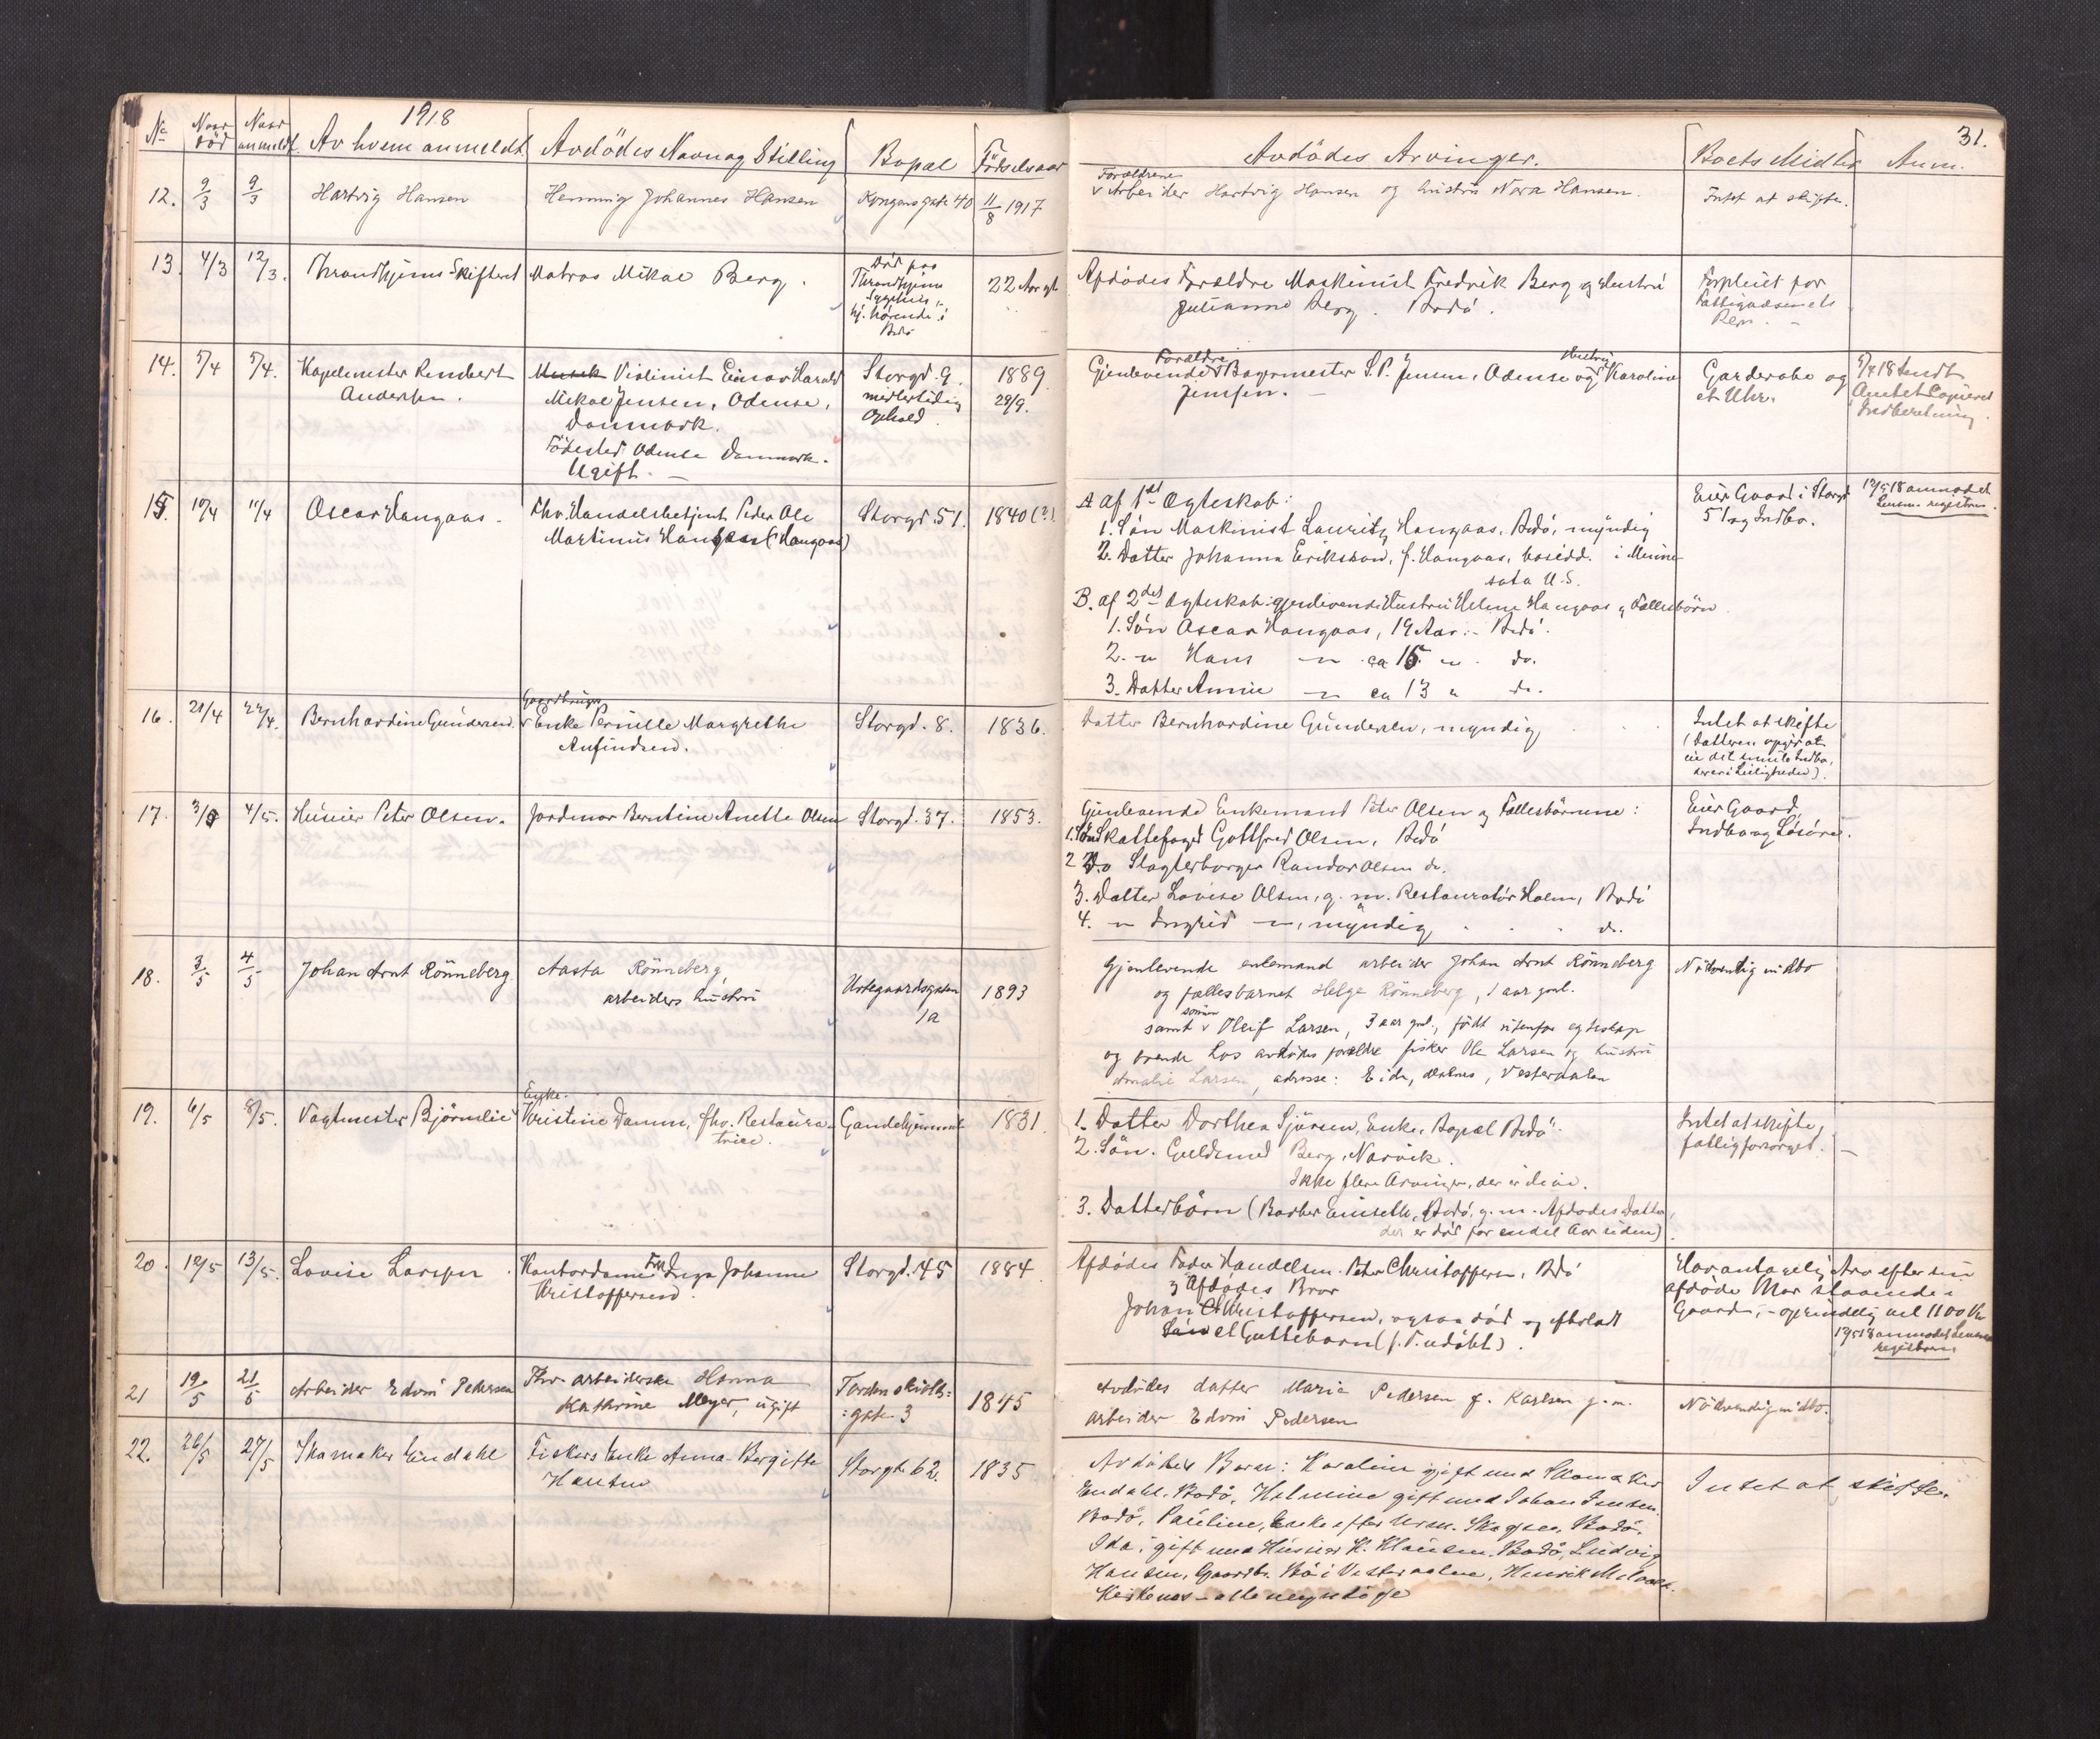 1918
31.
No Naar død Naar anmeldt Av hvem anmeldt Avdödes Navn og Stilling Bopæl Födselsaar Avdödes Arvinger. Boets Midler Anm.
12. 9/3 9/3 Hartvig Hansen Henning Johannes Hansen Kongensgate 40 11/8 1917
Forældrene
Arbeider Hartvig Hansen og hustru Nora Hansen. Intet at skifte.
13. 4/3 12/3. Throndhjems Skifteret Matros Mikal Berg.
Död paa
Throndhjems
Sygehus,
hj. hörende i
Bodö
22 Aar gl.
Afdödes Forældre Maskinist Fredrik Berg og Hustru
Julianne Berg. Bodö.
Forpleiet for
Fattigvæsenets
Regn. -
14. 5/4 5/4. Kapelmester Rembert
Andersen.
Musik Violinist Einar Harald
Mikal Jensen, Odense,
Danmark.
Födested Odense Danmark.
Ugift. -
Storgd. 9.
medlertidig
Ophold.
1889
29/9.
Forældre Hustru
Gjenlevende Bagermester S. P. Jensen, Odense og Karoline
Jensen. -
Garderobe og
et Uhr.
5/4 18 Sendt
Amtet Copieret
Indberetning.
15. 10/4 11/4 Oscar Hangaas. Fhv. Handelsbetjent Peder Ole
Martinus Hangaas (Hangaas)
Storgd. 51. 1840 (?).
A af 1st Ægteskab:
1. Sön Maskinist Lauritz Hangaas, Bodö, myndig
2. Datter Johanna Erikson, f. Hangaas, bosidd. i Minne-
sota U.S.
B. af 2det Ægteskab: gjenlevende Hustru Helene Hangaas og Fællesbörn.
1. Sön Oscar Hangaas, 19 Aar. - Bodö.
2. " Hans " ca 15 " do.
3. Datter Annie " ca 13 " do.
Eier Gaard i Storgd
51 og Indbo.
12/5 18 anmodet
Lensm. registrere.
16. 21/4 22/4. Bernhardine Gundersen.
Gaardbruger
Enke Pernille Margrethe
Anfindsen.
Storgd. 8. 1836.
Datter Bernhardine Gundersen, myndig
Intet at skifte
(Datteren opgir at
eie det smule Indbo,
der er i Leiligheden).
17. 3/5 4/5. Huseier Peter Olsen. Jordmor Berntine Anette Olsen Storgd. 37. 1853.
Gjenlevende Enkemand Peter Olsen og Fællesbörnene:
1. Sön Skattefoged Gottfred Olsen, Bodö
2 Do Slagterborger Randor Olsen do.
3. Datter Lovise Olsen, g. m. Restauratör Holm, Bodö
4. " Ingrid ", myndig, do.
Eier Gaard,
Indbo og Lösöre.
18. 3/5 4/5 Johan Arnt Rönneberg Aasta Rönneberg,
arbeiders hustru
Urtegaardsgaten
1a
1893
Gjenlevende enkemand arbeider Johan Arnt Rönneberg
og fællesbarnet Helge Rönneberg, 1 aar gml.
sönnen
samt Oleif Larsen, 3 aar gml., född utenfor egteskap
og boende hos avdödes forældre fisker Ole Larsen og hustru
Amalie Larsen, adresse: Eide, Vesteraalen
Nödvendig indbo
19. 6/5 8/5. Vagtmester Björnlie
Enke.
Kristine Damm, fhv. Restaura-
trice.
Gamlehjemmet 1831.
1. Datter Dorthea Sjursen, Enke, Bopæl Bodö.
2. Sön. Guldsmed Berg, Narvik.
Ikke flere Arvinger, der er ilive.
3. Datterbörn (Barber Einseth, Bodö, g. m. Afdödes Datter,
der er död for endel Aar siden)
Intet at skifte,
fattigforsörget. -
20. 12/5 13/5. Lovise Larsen. Kontordame Frk Inga Johanne
Kristoffersen.
Storgd. 45 1884.
Afdödes Fader Handelsm. Peter Christoffersen, Bodö
Afdödes Bror
Johan Christoffersen, ogsaa död og efterladt
Sön et Guttebarn (f. T. udöbt).
Har antagelig Arv efter sin
afdöde Mor staaende i
Gaarden, - oprindelig vel 1100 Kr
17/5 18 anmodet Lensm.
registrere
21 19/5 21/5 Arbeider Edvin Pedersen Fhv. arbeiderske Hanna
Kathrine Meyer, ugift
Tordenskiolds-
gate 3
1845
Avdödes datter Marie Pedersen f. Karlsen g. m.
arbeider Edvin Pedersen
Nödvendig indbo.
22. 26/5 27/5 Skomaker Eindahl Fiskers Enke Anna Bergitte
Hansen
Storgt. 62. 1835
Avdödes Barn: Karoline gift med Skomaker
Eindahl, Bodö, Helmine gift med Johan Jensen,
Bodö, Pauline, Enke efter Skagsen, Bodö,
Ida, gift med Huseier K. Klausen, Bodö, Ludvig
Hansen, Gaardbr. Bö i Vesteraalen, Henrik
Kirkenes - alle myndige
Intet at skifte.